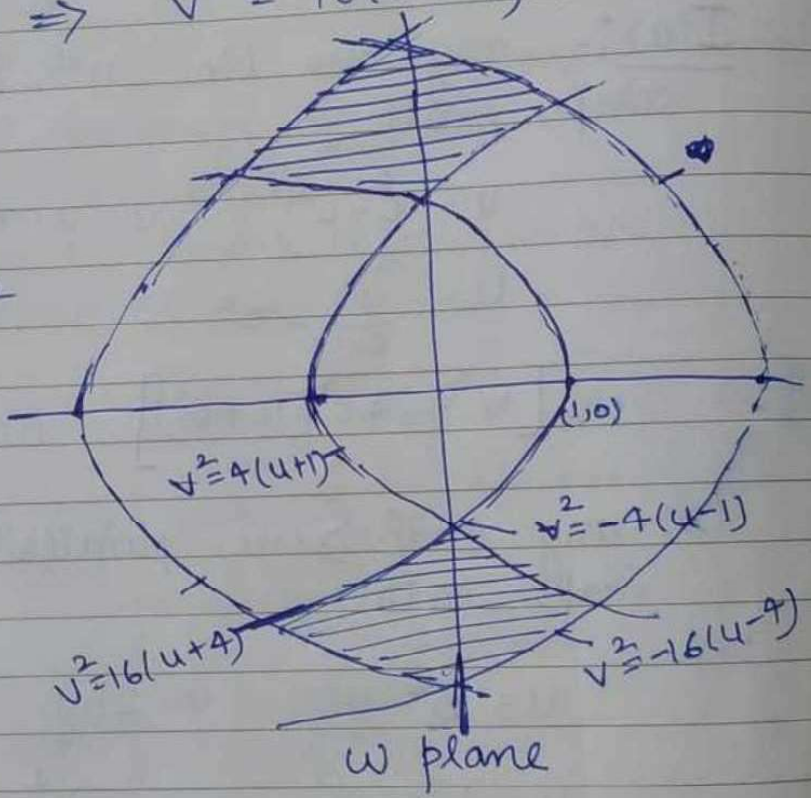 ⇒ V² = 
(1,0)
v²=4(u+1)
v²=-4(u-1)
v²=16(u+4)
v²=-16(u-4)
w plane